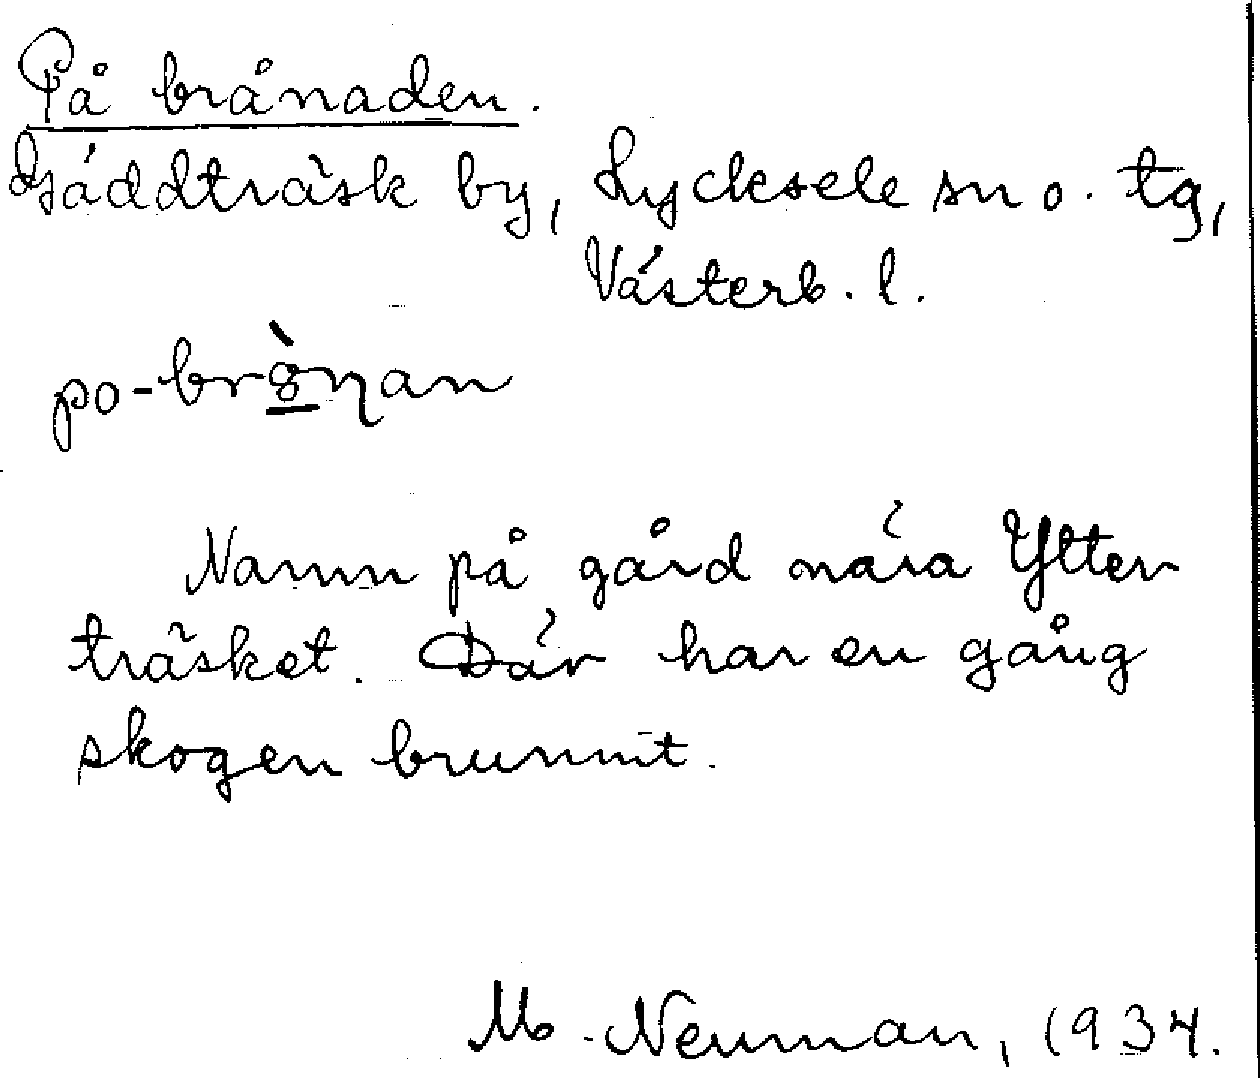 På brånaden.
Gäddträsk by, Lycksele sn o. tg,
Västerb. l.
Namn på gård nära Ytter
träsket. Där har en gång
skogen brunnit.
M. Neuman, 1934.